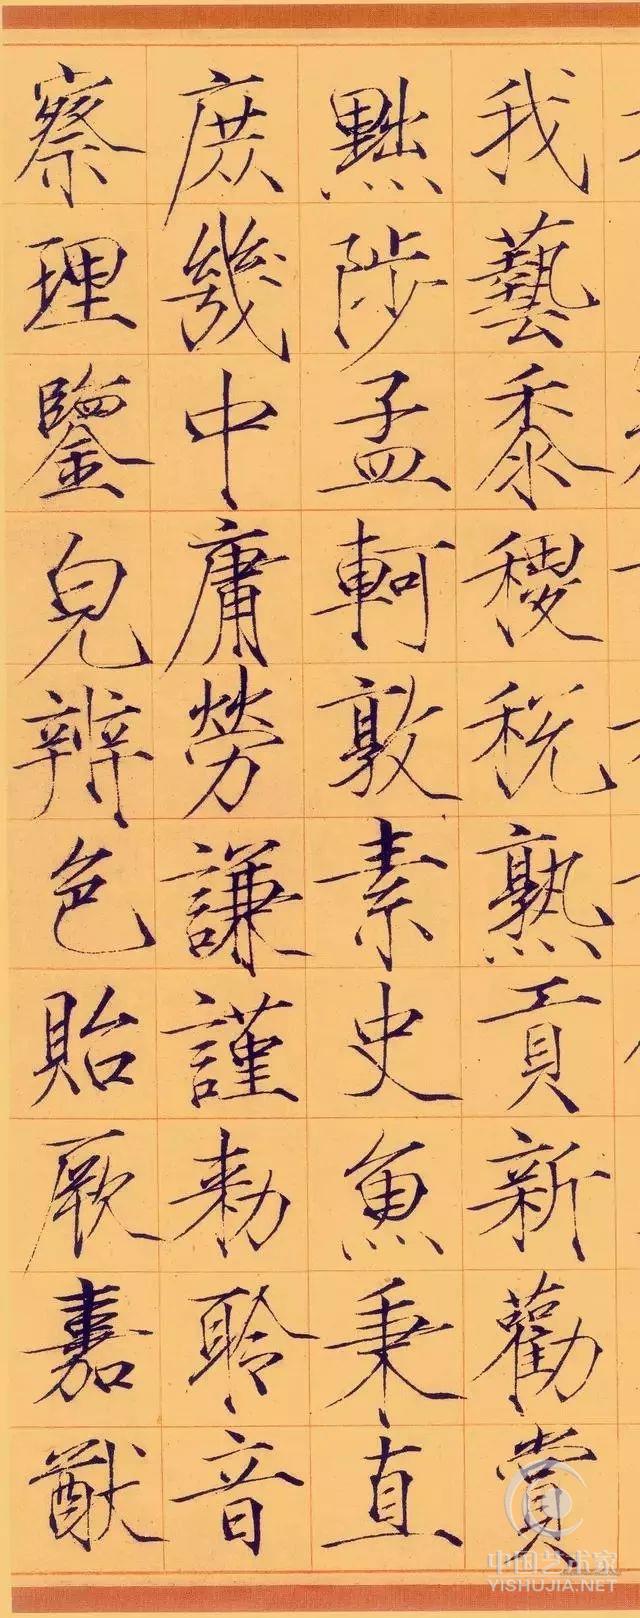 我藝黍稷稅熟貢新勸賞
黜陟孟軻敦素史魚秉直
庶幾中庸勞謙謹勅聆音
察理鑒皃辨色貽厥嘉猷
中国艺术家
YISHUJIA.NET